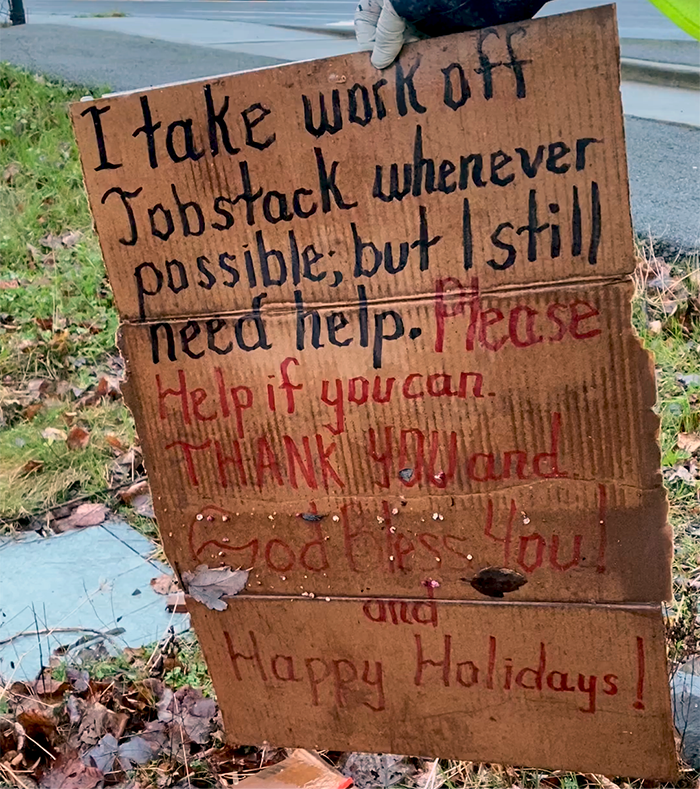 I take work off
Jobstack whenever
possible; but I still
need help. Please
Help if you can.
THANK YOU and
God bless You!
and
Happy Holidays!